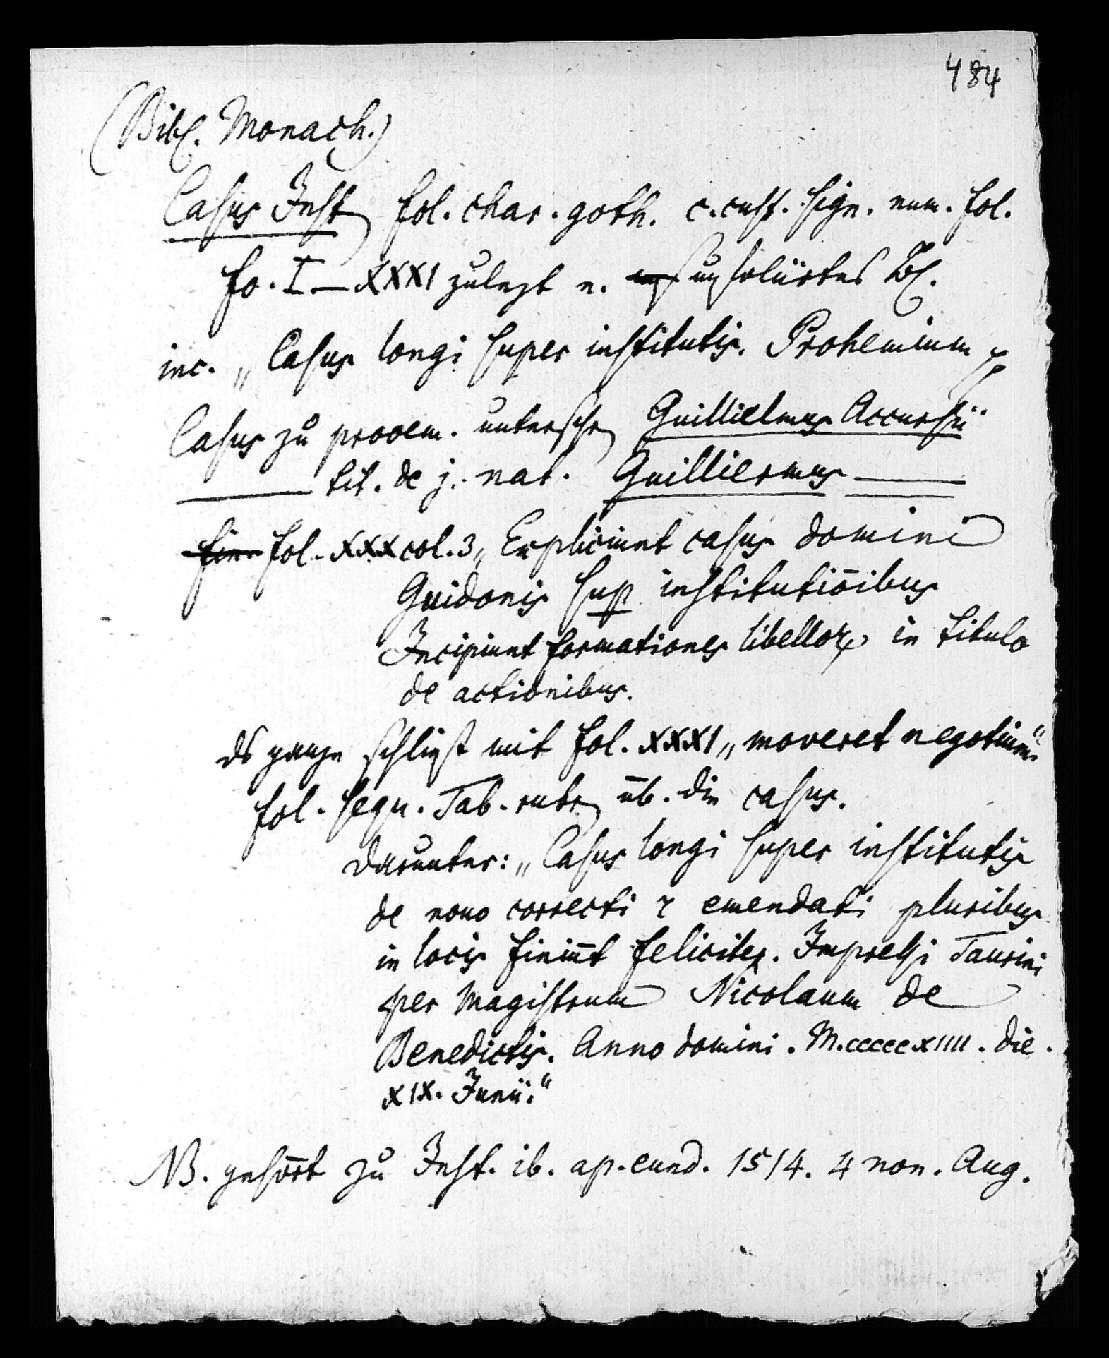 484
(Bibl. Monach.)
Casus Inst fol. char. goth. c. cust. sign. num. fol.
fo. I — XXXI zulezt e.
inc. „ Casus longi super institutis. Prohemium
Casus zu prooem. untersch Guillielmus Accursii
——— tit. de j. nat. Guilliermus ———
fol. XXX col. 3 „ Expliciunt casus domini
Guidonis sup institutiōibus
Incipiunt formationes libelloꝝ in titulo
de actionibus.
ds ganze schließt mit fol. XXXI „ moveret negotium“
fol. sequ. Tab. rubr üb. die casus.
darunter: „ Casus longi super institutis
de nouo correcti ⁊ emendati pluribus
in locis finiūt feliciter. Impressi Taurini
per magistrum Nicolaum de
Benedictis. Anno domini . M.ccccc.xiiii . die .
xix. Junii.“
NB. gehört zu Inst. ib. ap. eund. 1514. 4 non. Aug.